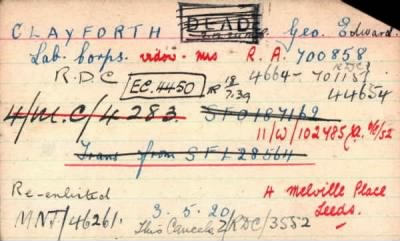 CLAYFORTH DEAD Geo. Edward.
Lab. Corps. widow - mrs R.A. 700858
R.D.C. E.C. 4450 4664 - 701151
44654
4/M.C/4283. SFO187162
11/W/102485
Trans from SFL28564
Re-enlisted 4 Melville Place
MNT/46261. 3.5.20 Leeds.
This Cancels 2/RDC/3552